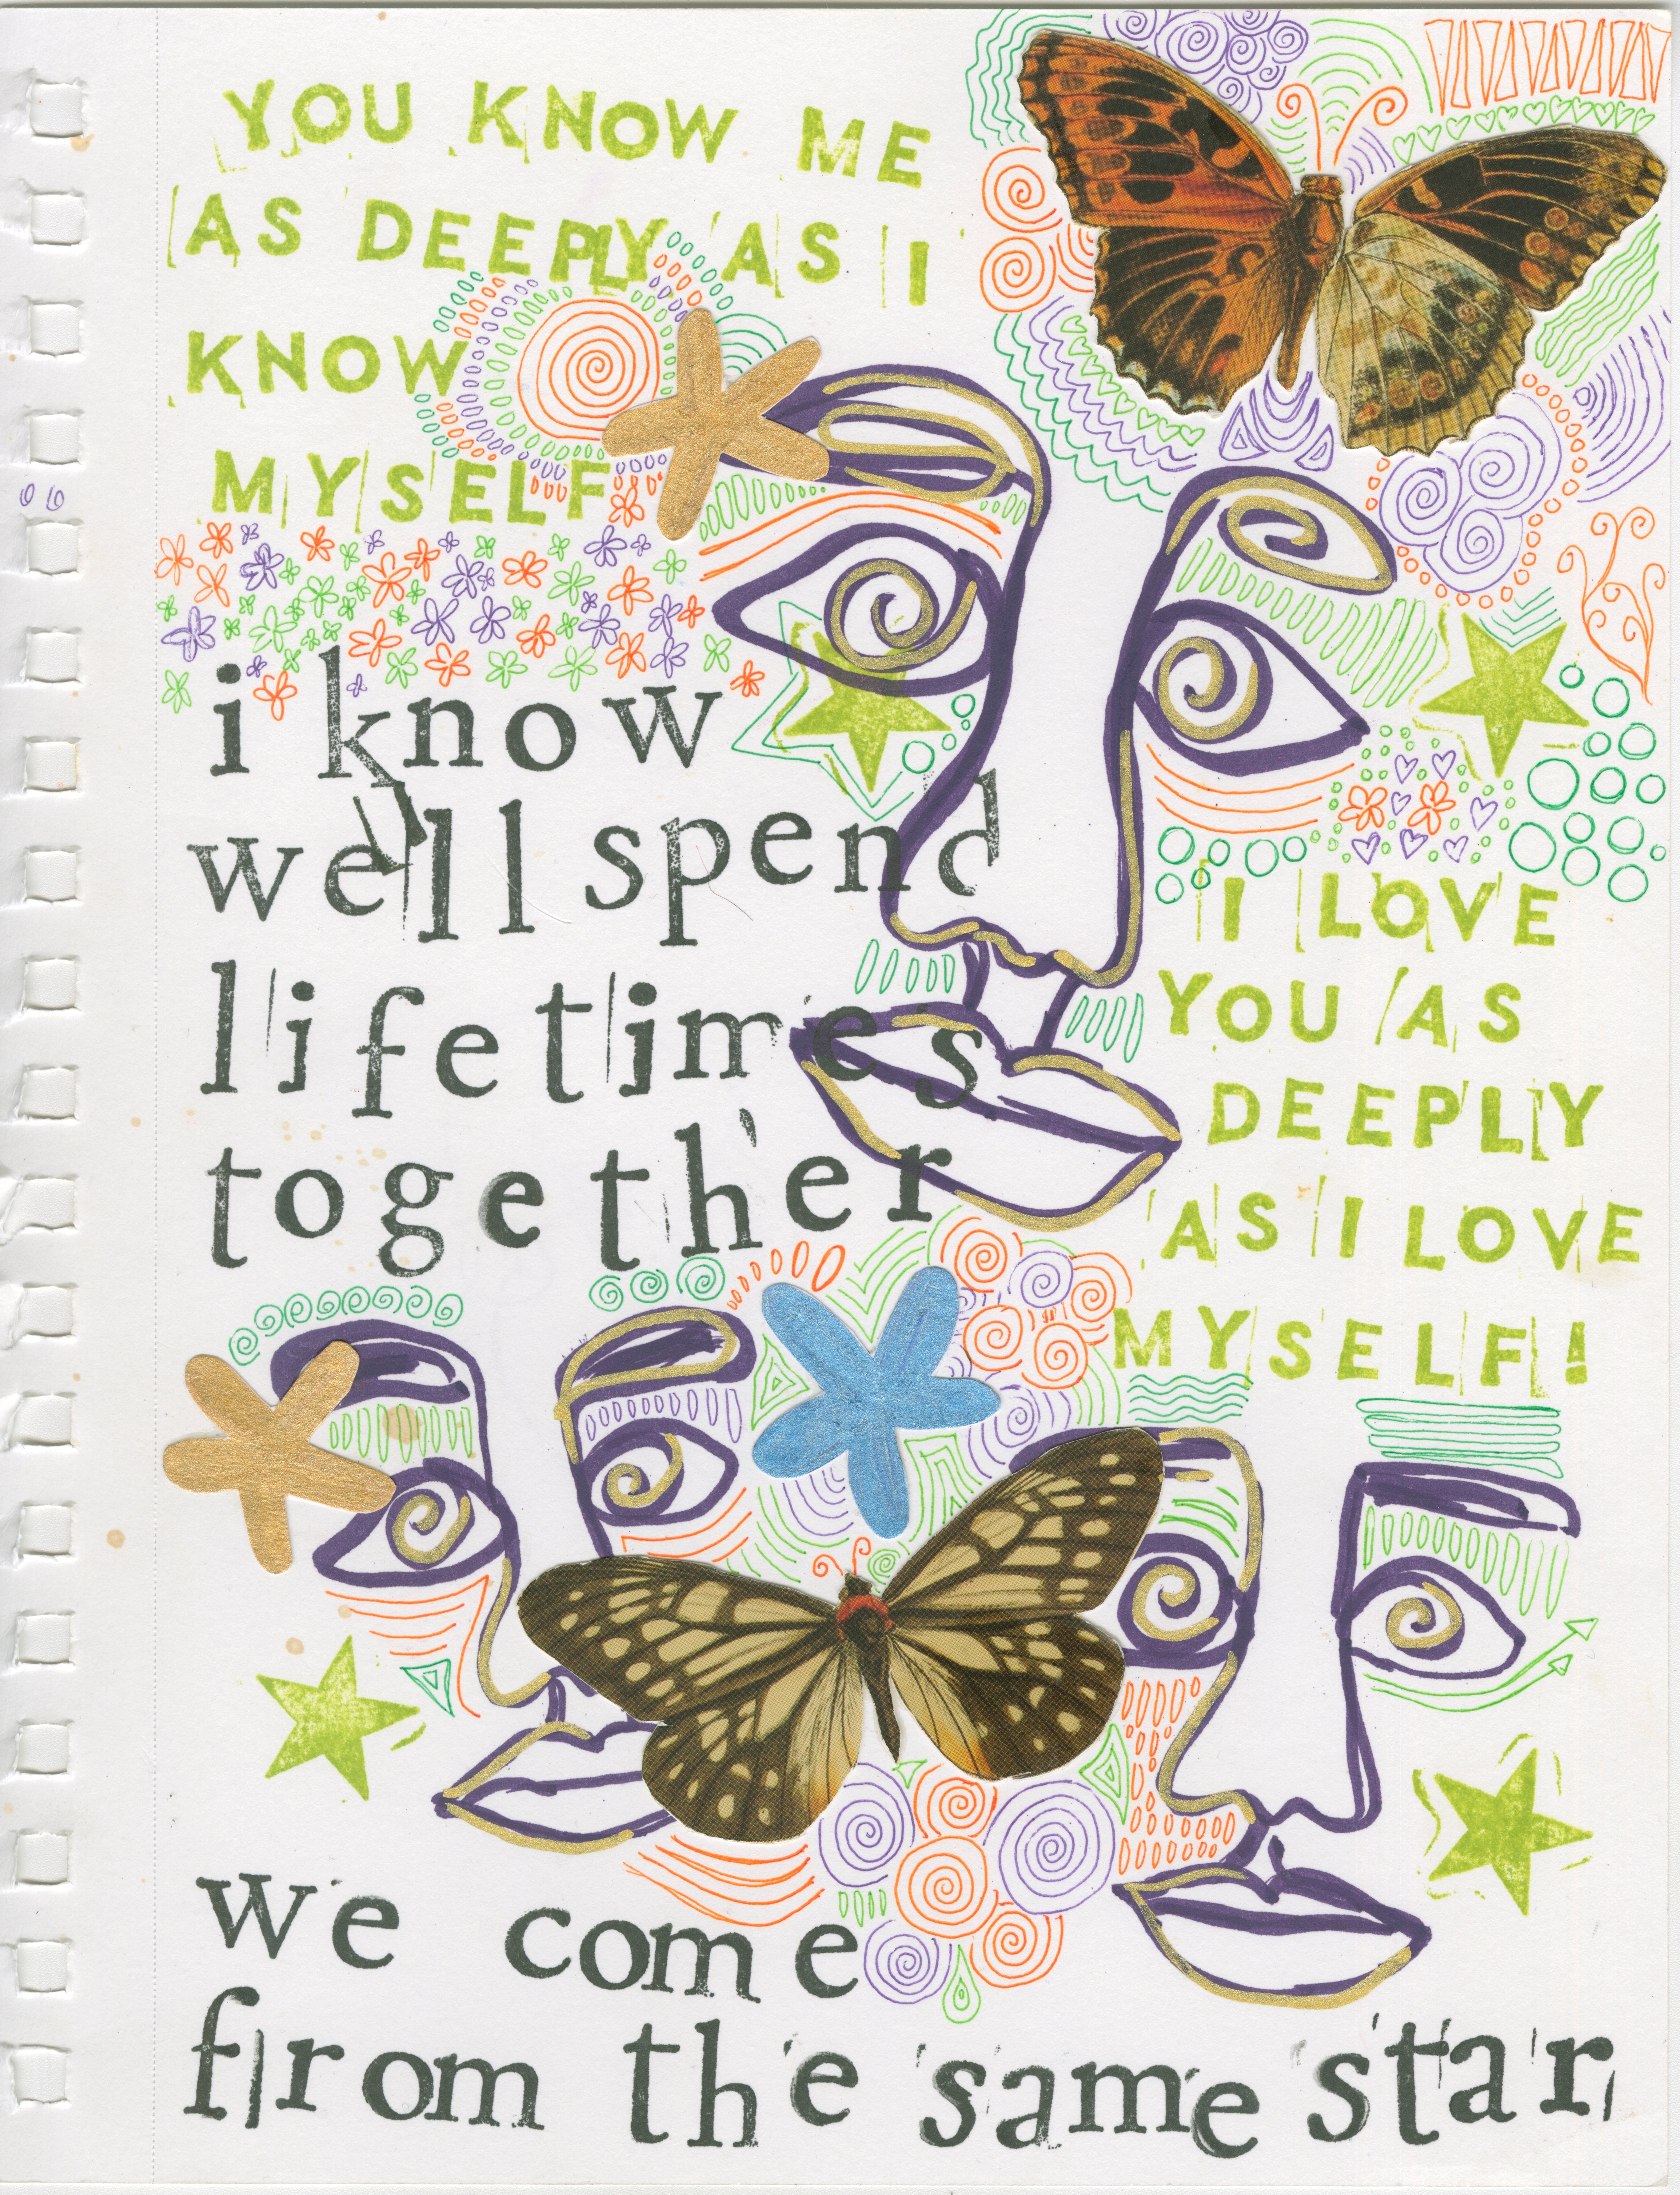 YOU KNOW ME
AS DEEPLY AS I
KNOW
MYSELF
i know
we'll spend
lifetimes
together
I LOVE
YOU AS
DEEPLY
AS I LOVE
MYSELF!
we come
from the same star